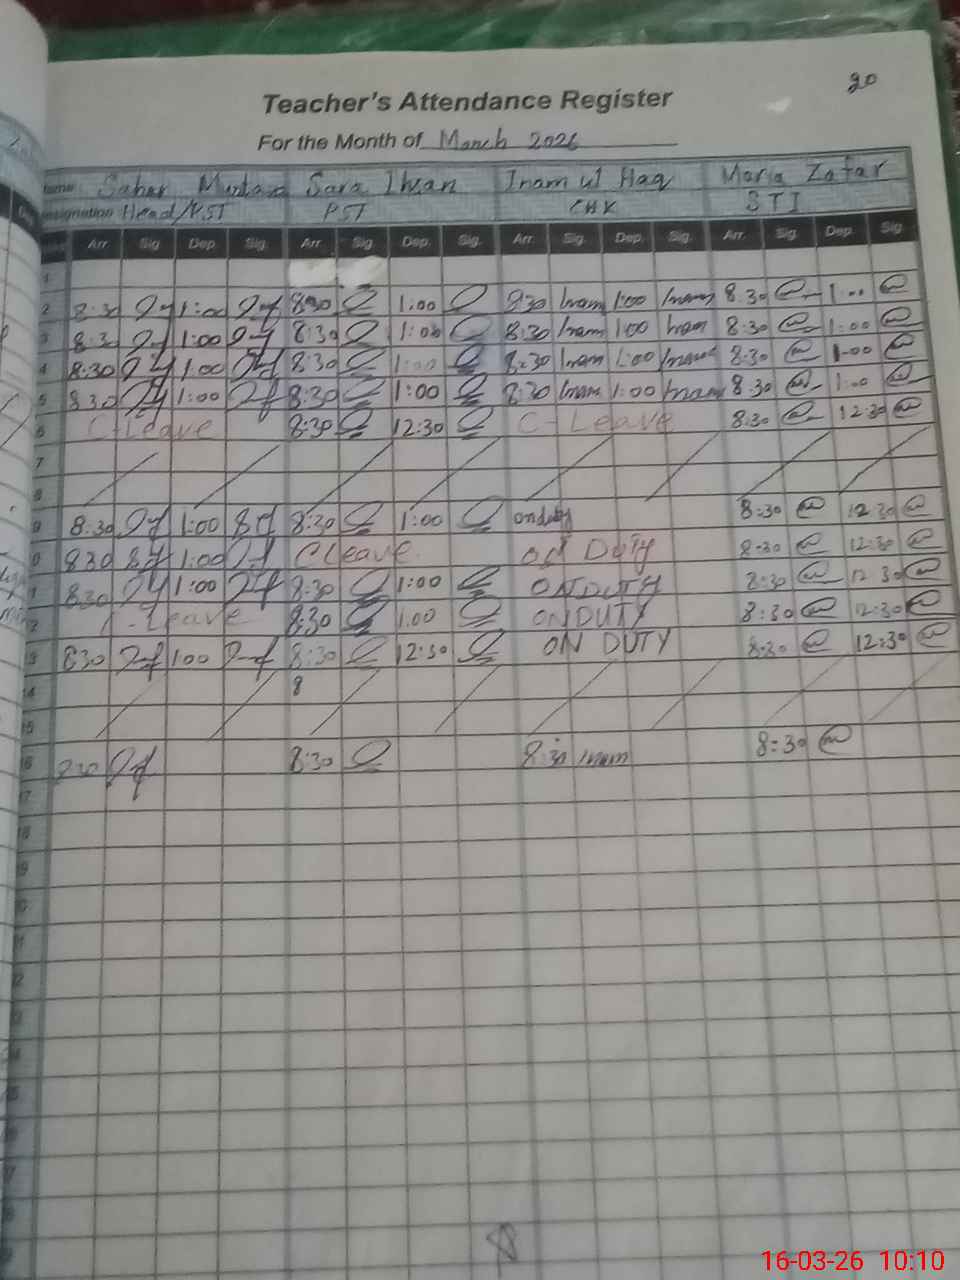 20
Teacher's Attendance Register
For the Month of March 2026
Name Sahar Murtaza Sara Ihsan Inam ul Haq Maria Zafar
Designation Head/PST PST CHK STI
Arr. Sig Dep. Sig. Arr. Sig. Dep. Sig. Arr. Sig. Dep. Sig. Arr. Sig. Dep. Sig.
1
2 8:30 1:00 8:30 1:00 8:30 Inam 1:00 Inam 8:30 1:00
3 8:30 1:00 8:30 1:00 8:30 Inam 1:00 Inam 8:30 1:00
4 8:30 1:00 8:30 1:00 8:30 Inam 1:00 Inam 8:30 1:00
5 8:30 1:00 8:30 1:00 8:30 Inam 1:00 Inam 8:30 1:00
6 C-Leave 8:30 12:30 C-Leave 8:30 12:30
7
8
9 8:30 1:00 8:30 1:00 onduty 8:30 12:30
830 1:00 C Leave ON DUTY 8:30 12:30
830 1:00 8:30 1:00 ON DUTY 8:30 12:30
C-Leave 8:30 1:00 ON DUTY 8:30 12:30
830 100 8:30 12:30 ON DUTY 8:30 12:30
14 8
15
16 8:30 8:30 Inam 8:30
17
18
19
16-03-26 10:10